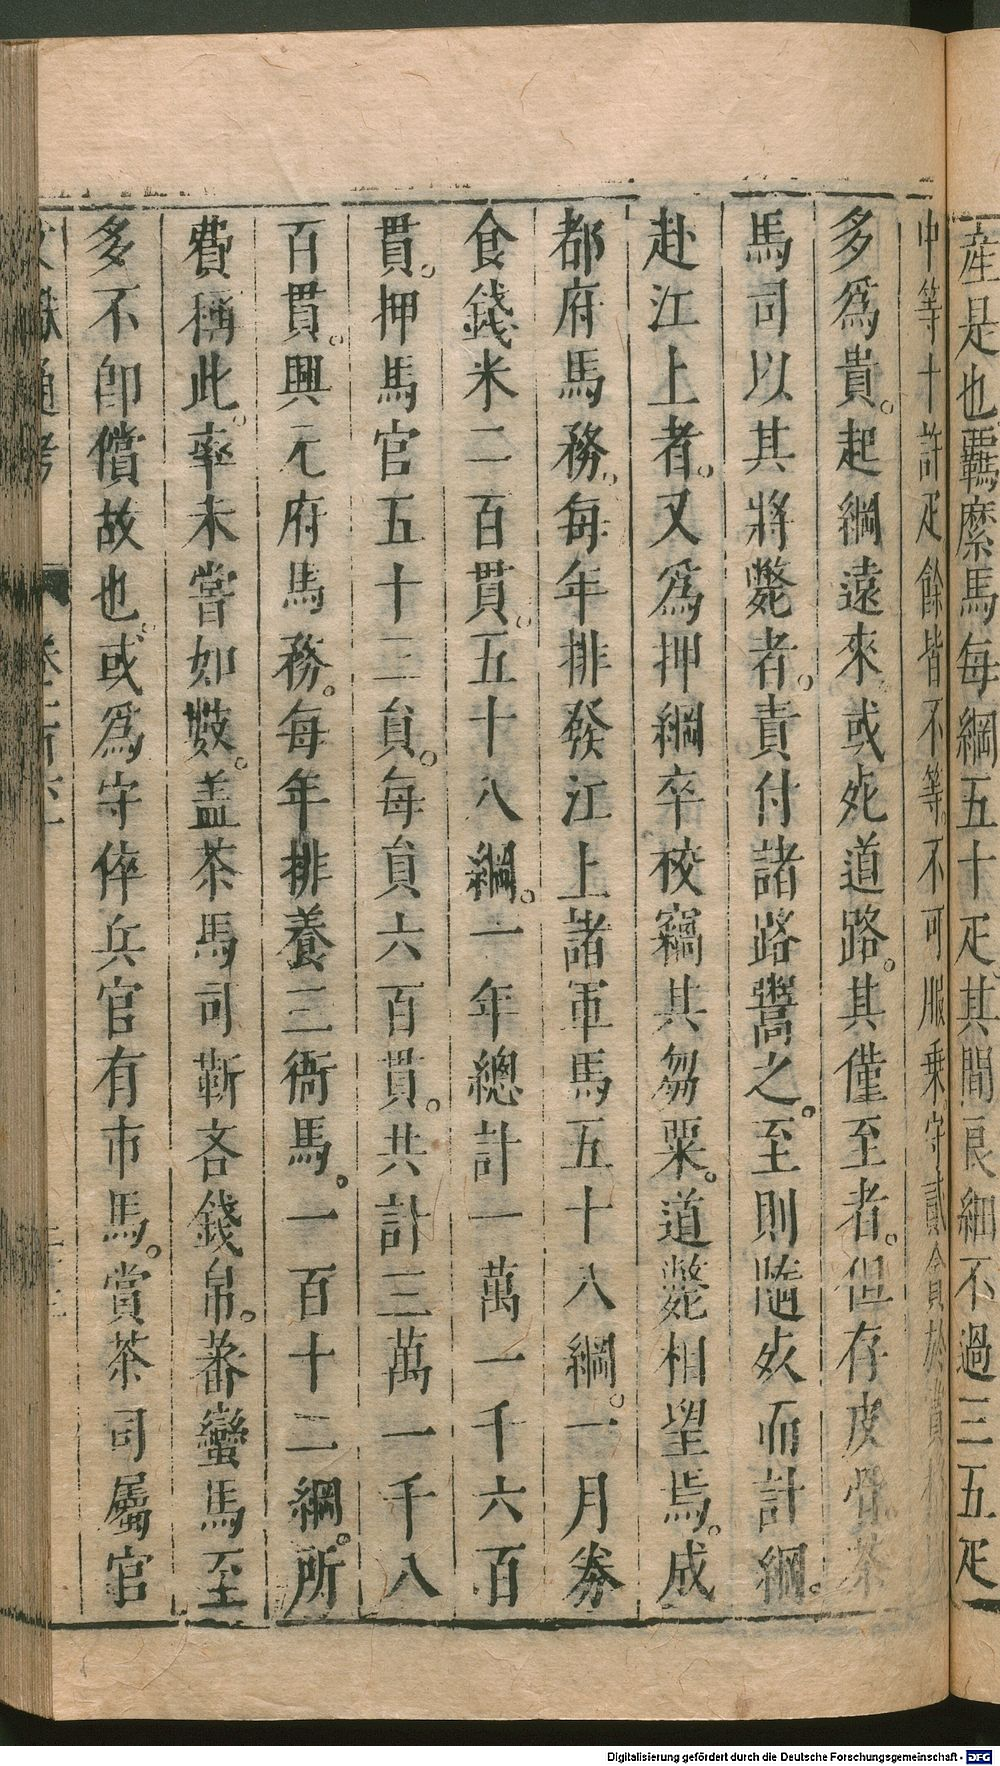 産是也覊縻馬每綱五十疋其間良細不過三五疋
中等十許疋餘皆不等不可服乗守貳貪於賞格以
多爲貴。起綱遠來或死道路。其僅至者。但存皮骨茶
馬司以其將斃者。責付諸路鬻之。至則隨死而計綱。
赴江上者。又爲押綱卒校竊其芻粟。道斃相望焉。成
都府馬務。每年排發江上諸軍馬五十八綱。一月券
食錢米二百貫。五十八綱。一年總計一萬一千六百
貫。押馬官五十三貟。每貟六百貫。共計三萬一千八
百貫。興元府馬務。每年排養三衙馬。一百十二綱。所
費稱此。率未嘗如數。盖茶馬司靳吝錢帛。蕃蠻馬至
多不卽償故也。或爲守倅兵官有市馬。賞茶司屬官
文獻通考
Digitalisierung gefördert durch die Deutsche Forschungsgemeinschaft - DFG